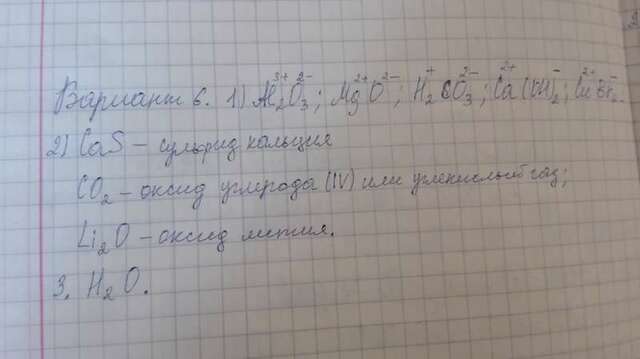 Вариант 6. 1) Al₂³⁺O₃²⁻; Mg²⁺O²⁻; H₂⁺CO₃²⁻; Ca²⁺(OH)₂⁻; Cu²⁺Br₂⁻.
2) CaS – сульфид кальция
CO₂ – оксид углерода (IV) или углекислый газ;
Li₂O – оксид лития.
3. H₂O.